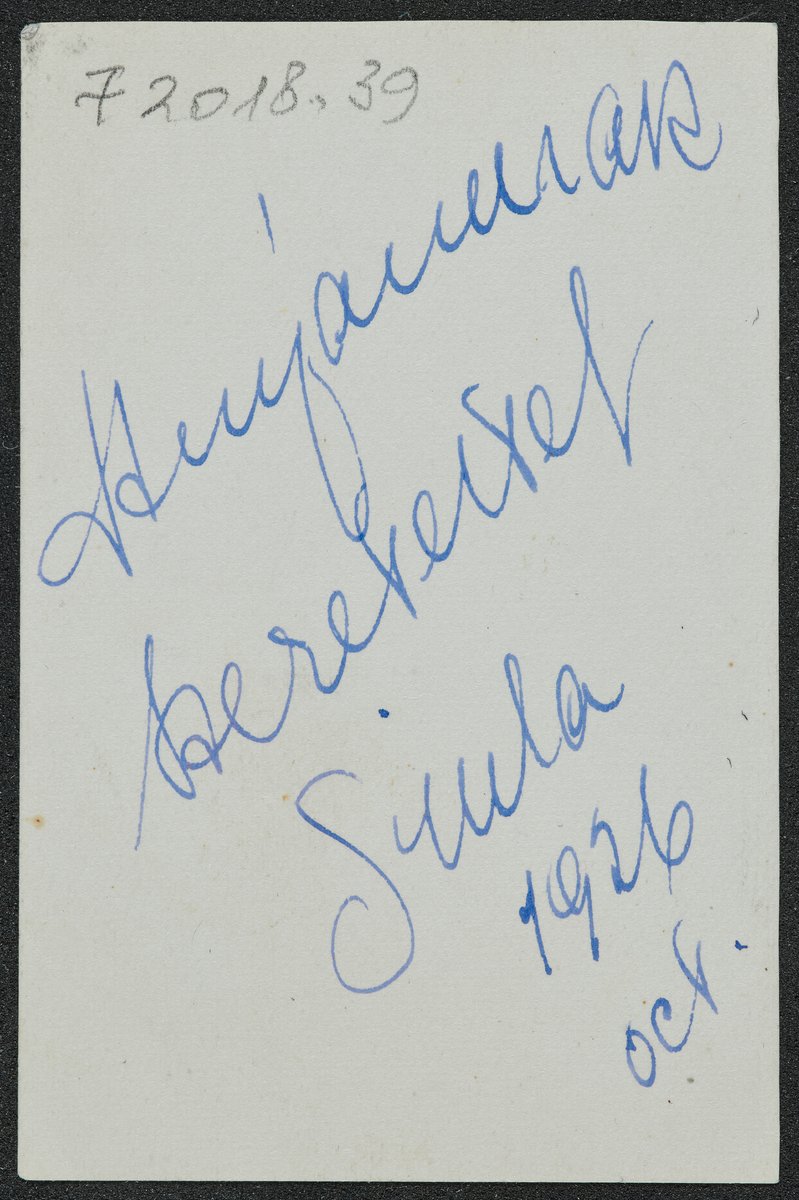 72018.39
Anyámnak
szeretettel
Gyula
1926
oct.